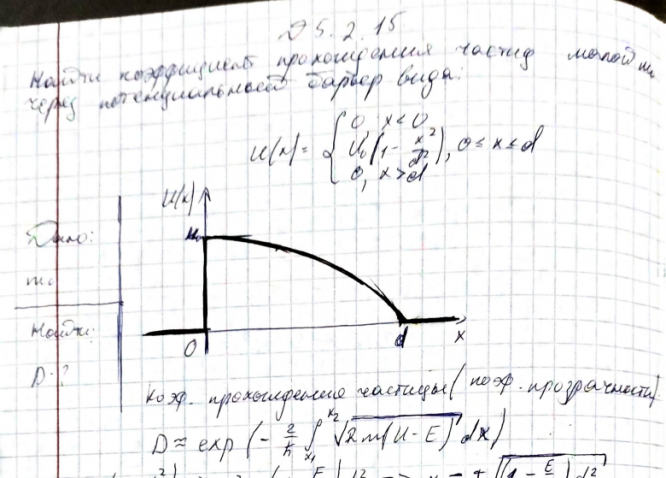 D 5.2.15
Найти коэффициент прохождения частиц массой m₀
через потенциальный барьер вида:
U(x) = { 0, x < 0
U₀(1 - x²/d²), 0 ≤ x ≤ d
0, x > d
U(x)
Дано:
U₀
m₀
Найти:
D-?
0 d x
Коэф. прохождение частицы (коэф. прозрачности)
D ≈ exp(-2/ħ ∫ₓ₁ˣ² √2m(U-E) dx)